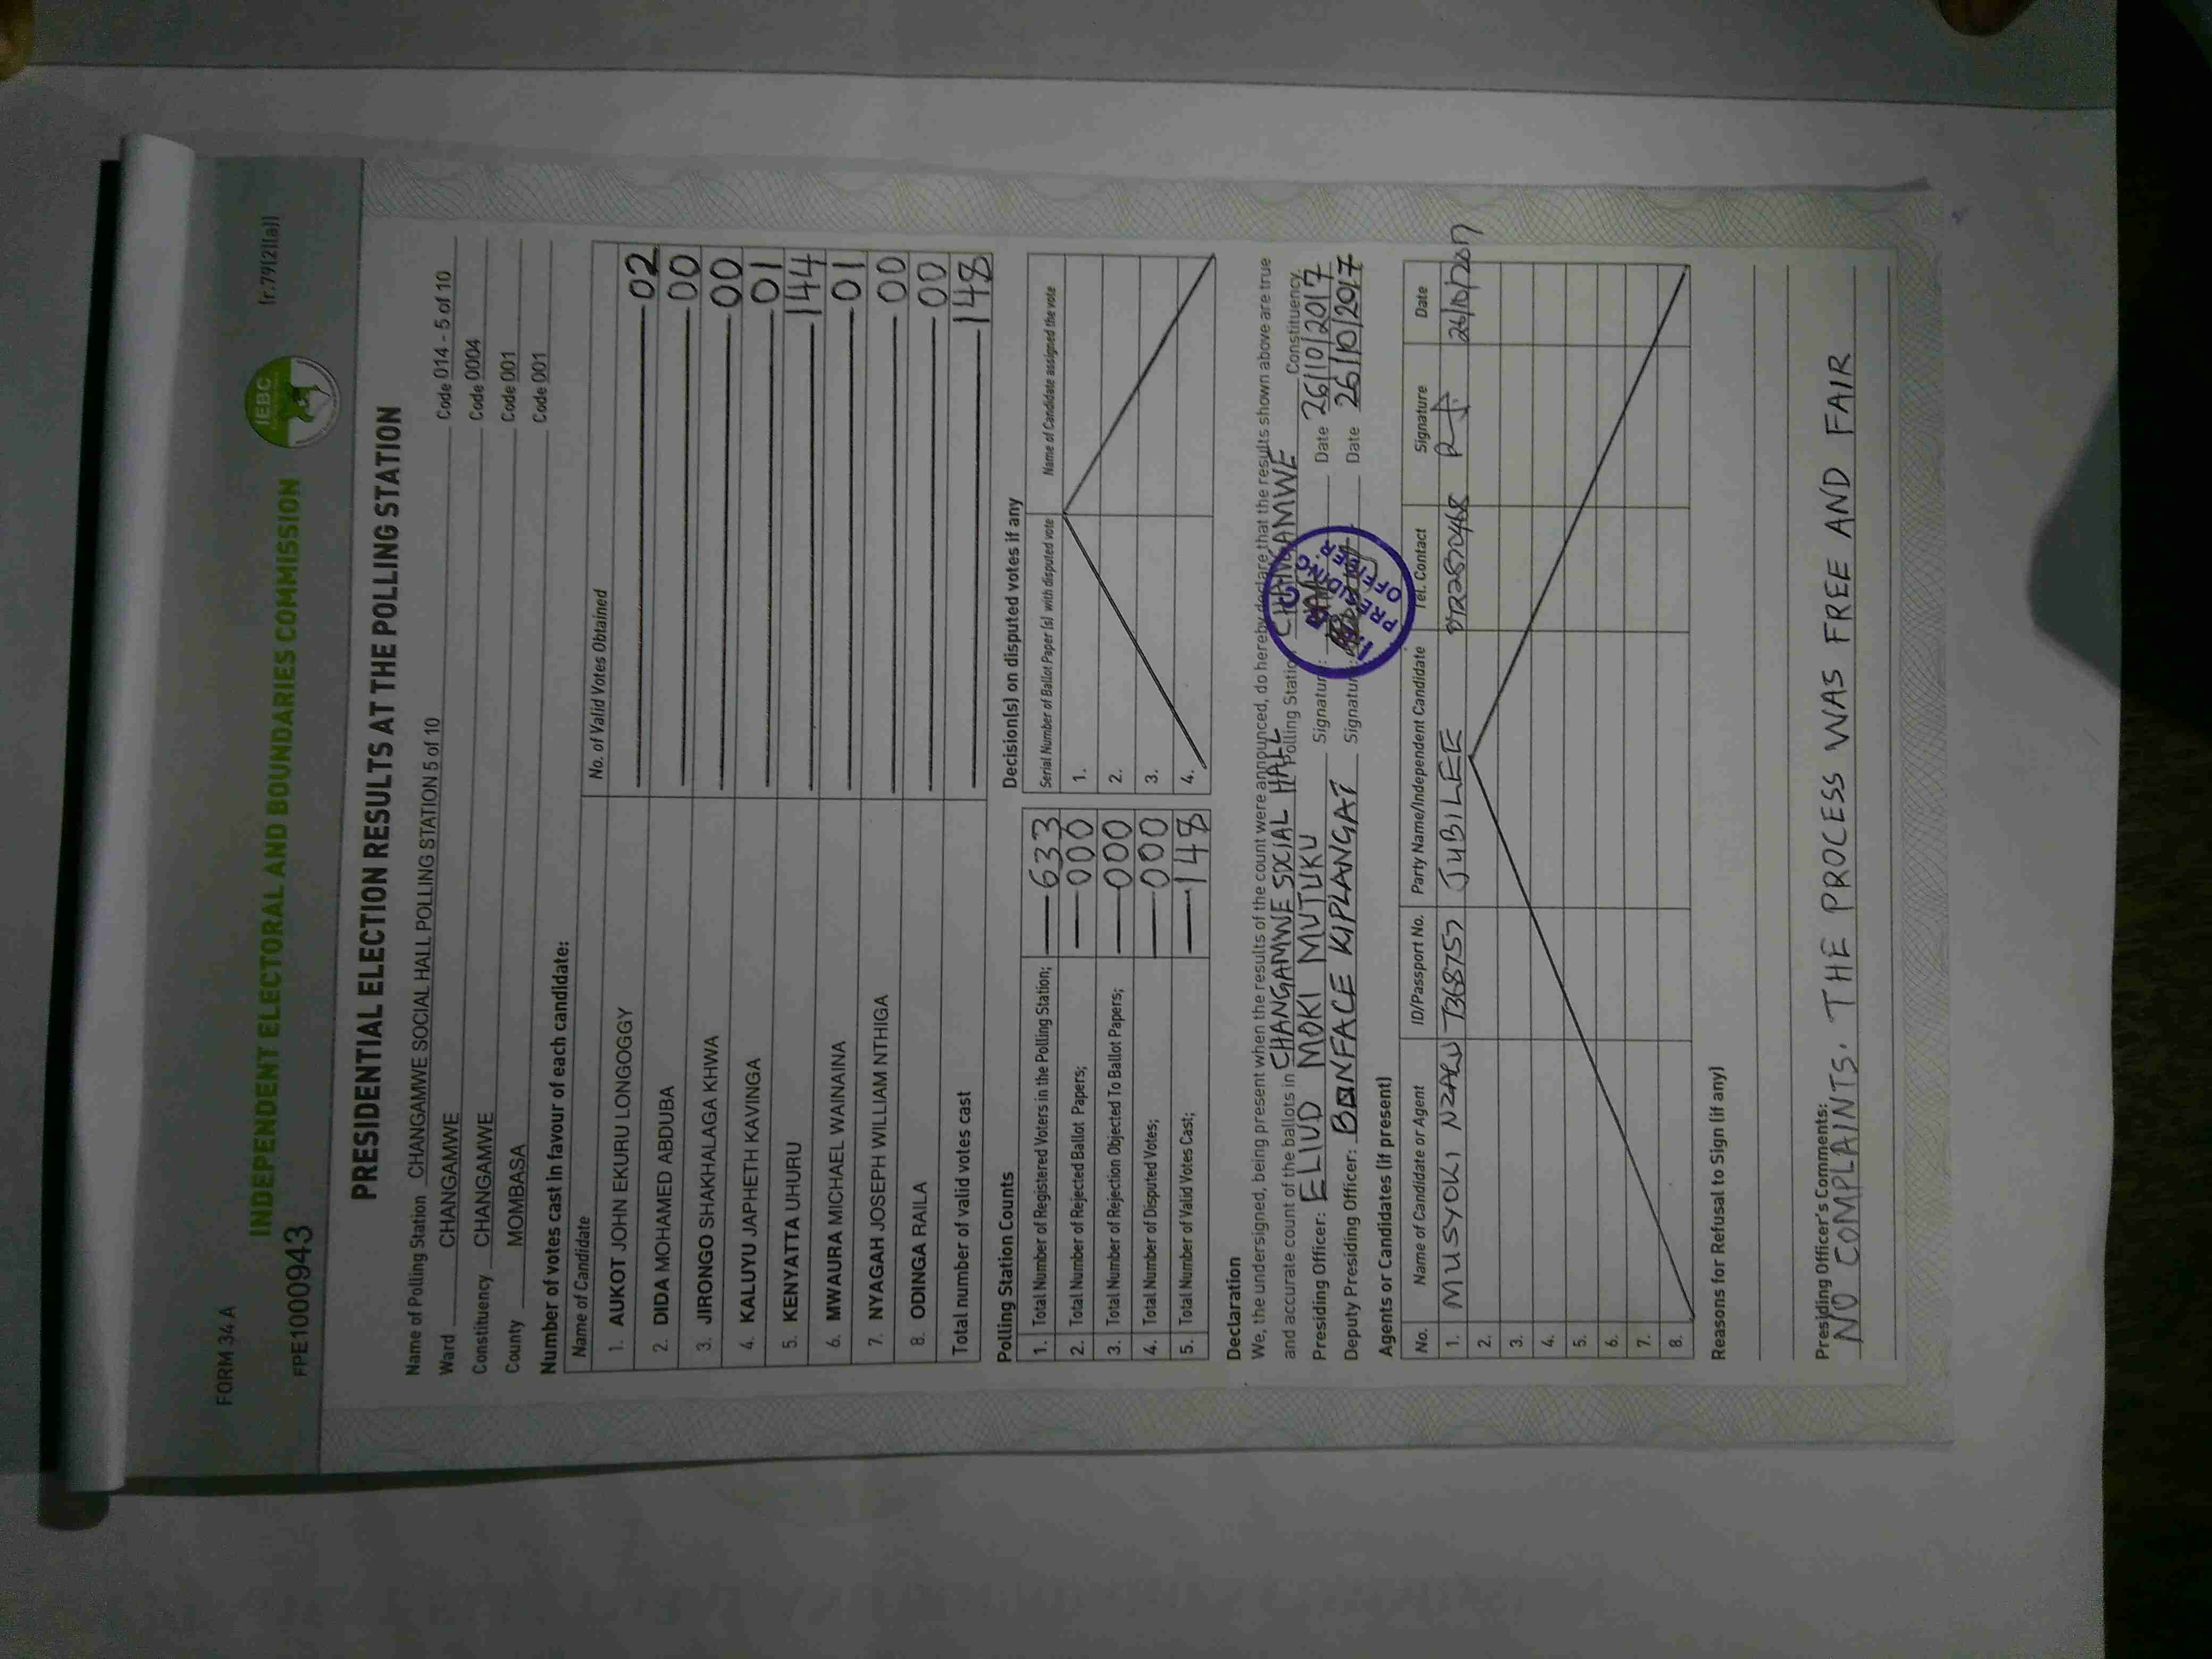 FORM 34 A
(r.79(2)(a))
INDEPENDENT ELECTORAL AND BOUNDARIES COMMISSION
IEBC
FPE1000943
PRESIDENTIAL ELECTION RESULTS AT THE POLLING STATION
Name of Polling Station CHANGAMWE SOCIAL HALL POLLING STATION 5 of 10 Code 014 - 5 of 10
Ward CHANGAMWE Code 0004
Constituency CHANGAMWE Code 001
County MOMBASA Code 001
Number of votes cast in favour of each candidate:
Name of Candidate No. of Valid Votes Obtained
1. AUKOT JOHN EKURU LONGOGGY 02
2. DIDA MOHAMED ABDUBA 00
3. JIRONGO SHAKHALAGA KHWA 00
4. KALUYU JAPHETH KAVINGA 01
5. KENYATTA UHURU 144
6. MWAURA MICHAEL WAINAINA 01
7. NYAGAH JOSEPH WILLIAM NTHIGA 00
8. ODINGA RAILA 00
Total number of valid votes cast 148
Polling Station Counts Decision(s) on disputed votes if any
Serial Number of Ballot Paper (s) with disputed vote Name of Candidate assigned the vote
1. Total Number of Registered Voters in the Polling Station; 633 1.
2. Total Number of Rejected Ballot Papers; 000 2.
3. Total Number of Rejection Objected To Ballot Papers; 000 3.
4. Total Number of Disputed Votes; 000 4.
5. Total Number of Valid Votes Cast; 148
Declaration
We, the undersigned, being present when the results of the count were announced, do hereby declare that the results shown above are true
and accurate count of the ballots in CHANGAMWE SOCIAL HALL Polling Station CHANGAMWE Constituency.
Presiding Officer: ELIUD MOKI MUTUKU Signature: Date 26/10/2017
Deputy Presiding Officer: BONFACE KIPLANGAT Signature: Date 26/10/2017
PRESIDING OFFICER
Agents or Candidates (if present)
No. Name of Candidate or Agent ID/Passport No. Party Name/Independent Candidate Tel. Contact Signature Date
1. MUSYOKI NZALU 7368757 JUBILEE 26/10/2017
2.
3.
4.
5.
6.
7.
8.
Reasons for Refusal to Sign (if any)
Presiding Officer's Comments:
NO COMPLAINTS. THE PROCESS WAS FREE AND FAIR